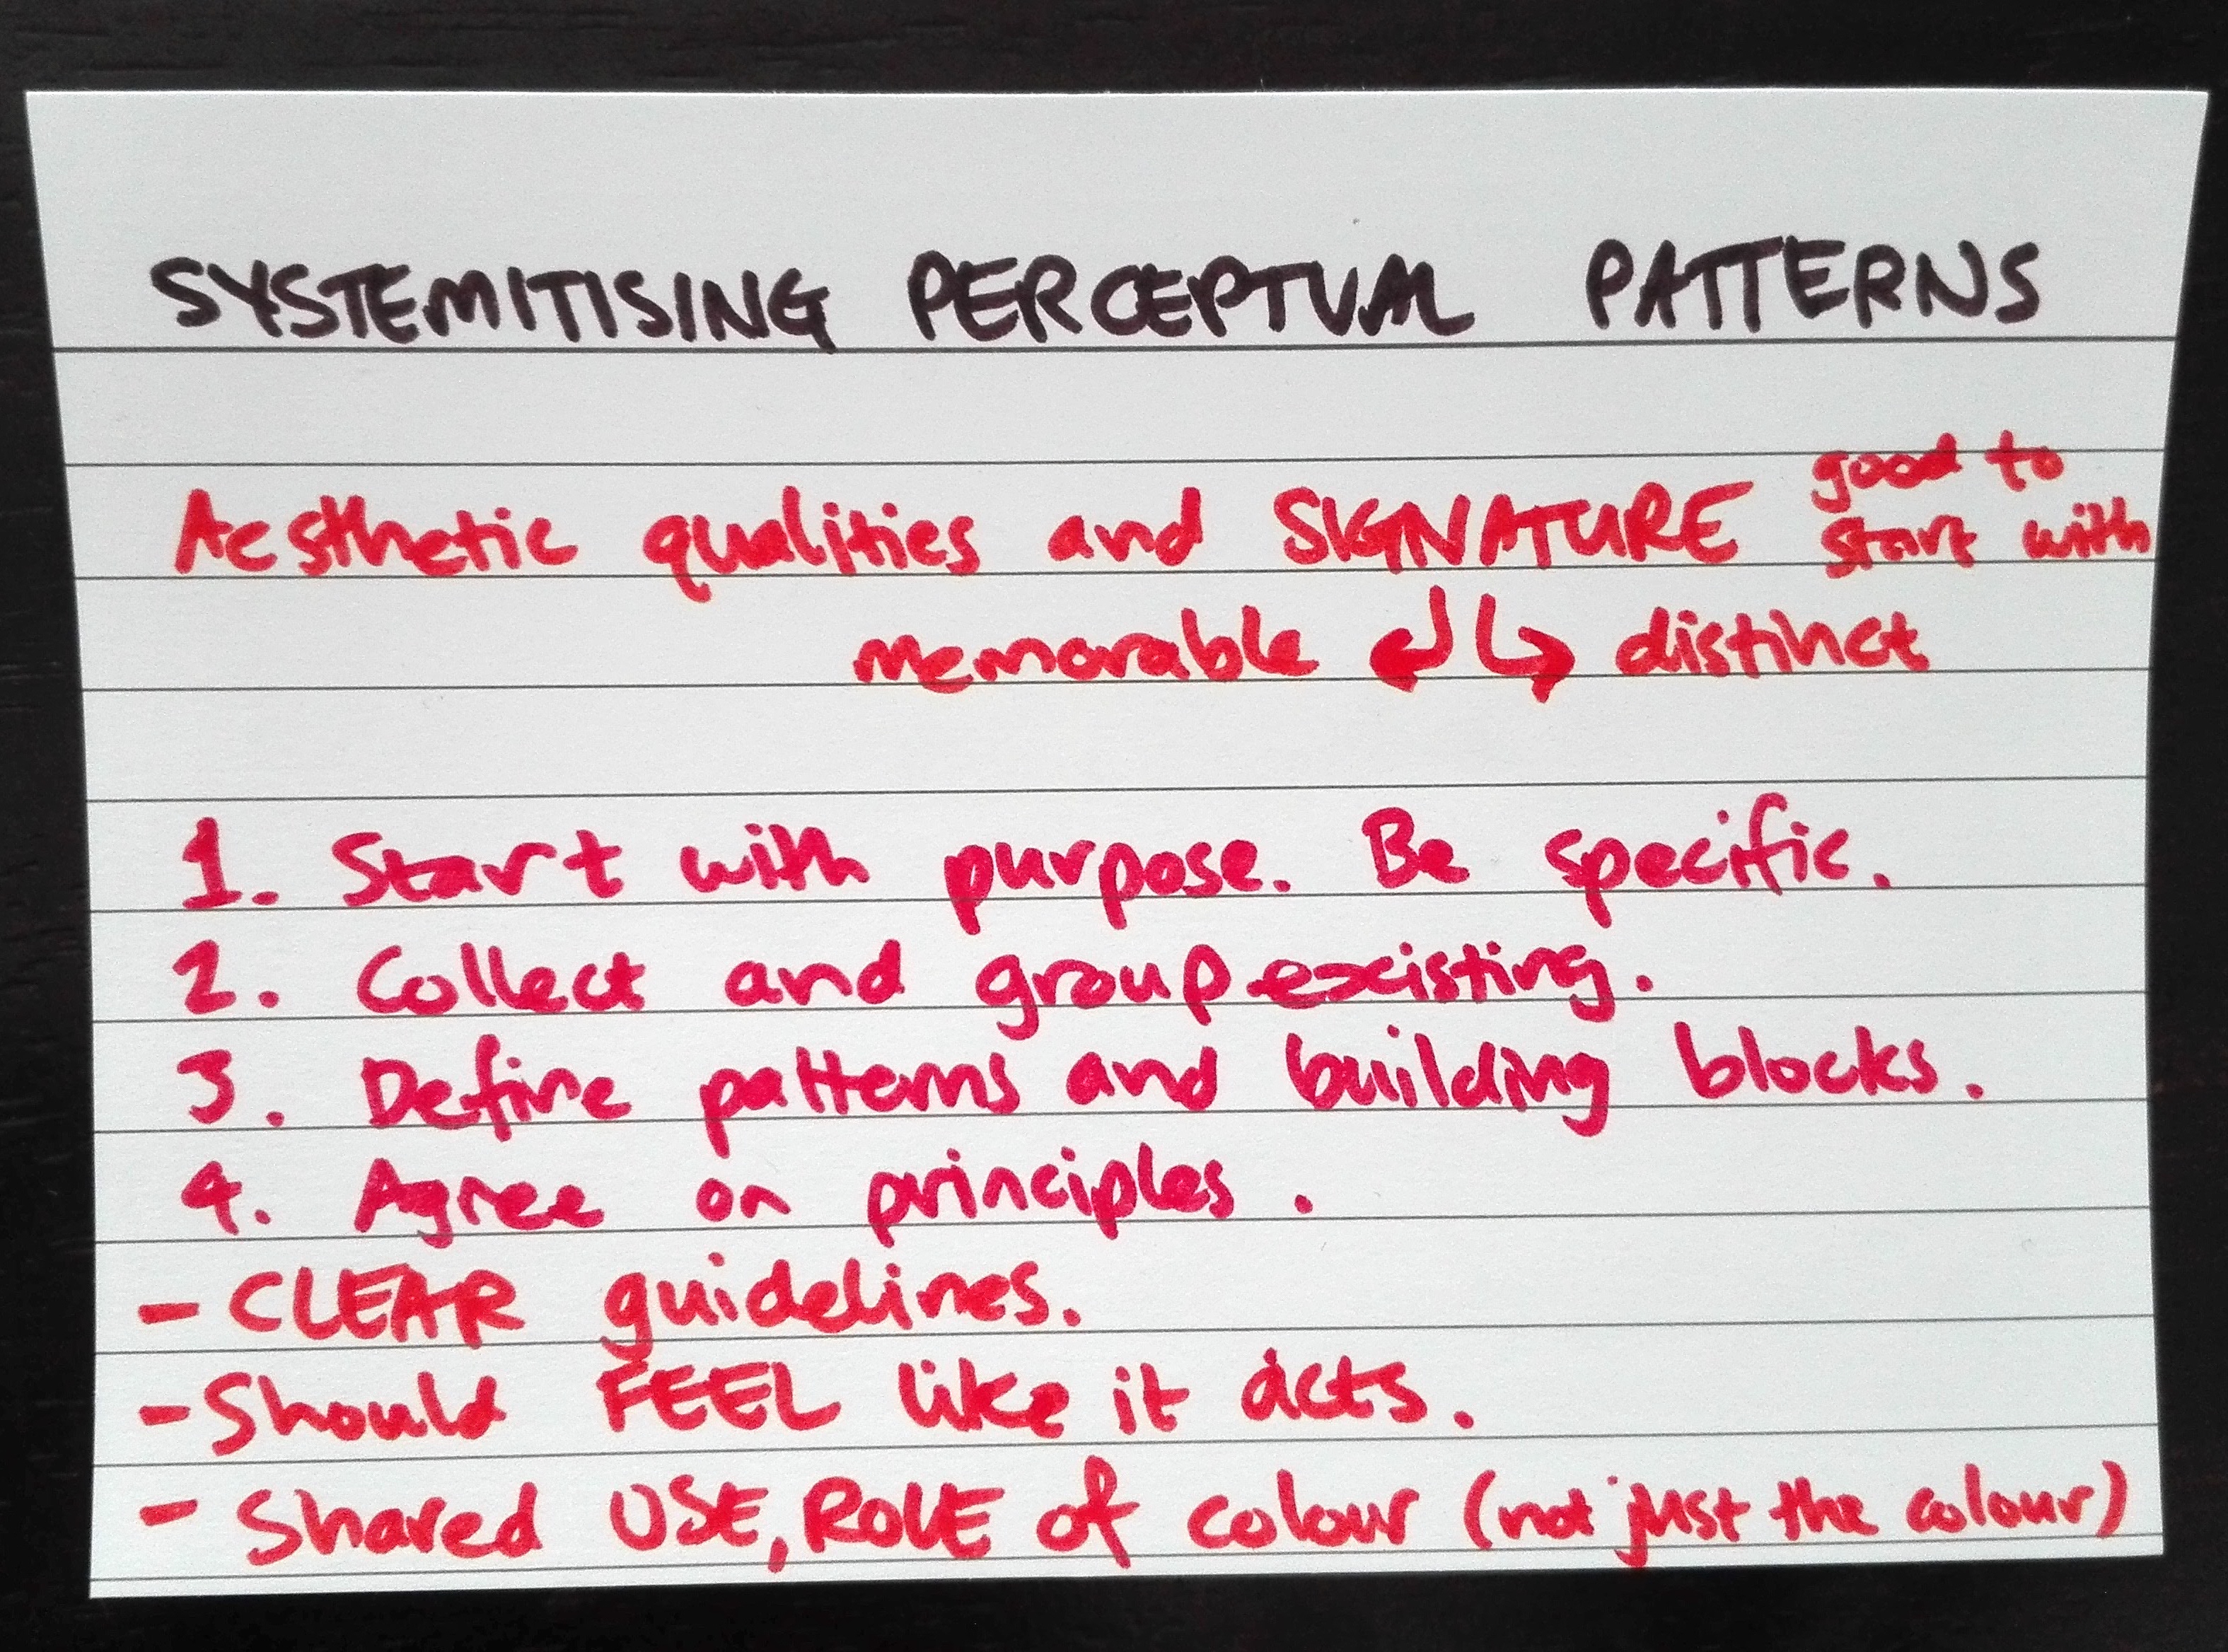 SYSTEMITISING PERCEPTUAL PATTERNS
Aesthetic qualities and SIGNATURE good to
start with
memorable ↲ ↳ distinct
1. Start with purpose. Be specific.
2. Collect and group existing.
3. Define patterns and building blocks.
4. Agree on principles.
- CLEAR guidelines.
- Should FEEL like it acts.
- Shared USE, ROLE of colour (not just the colour)